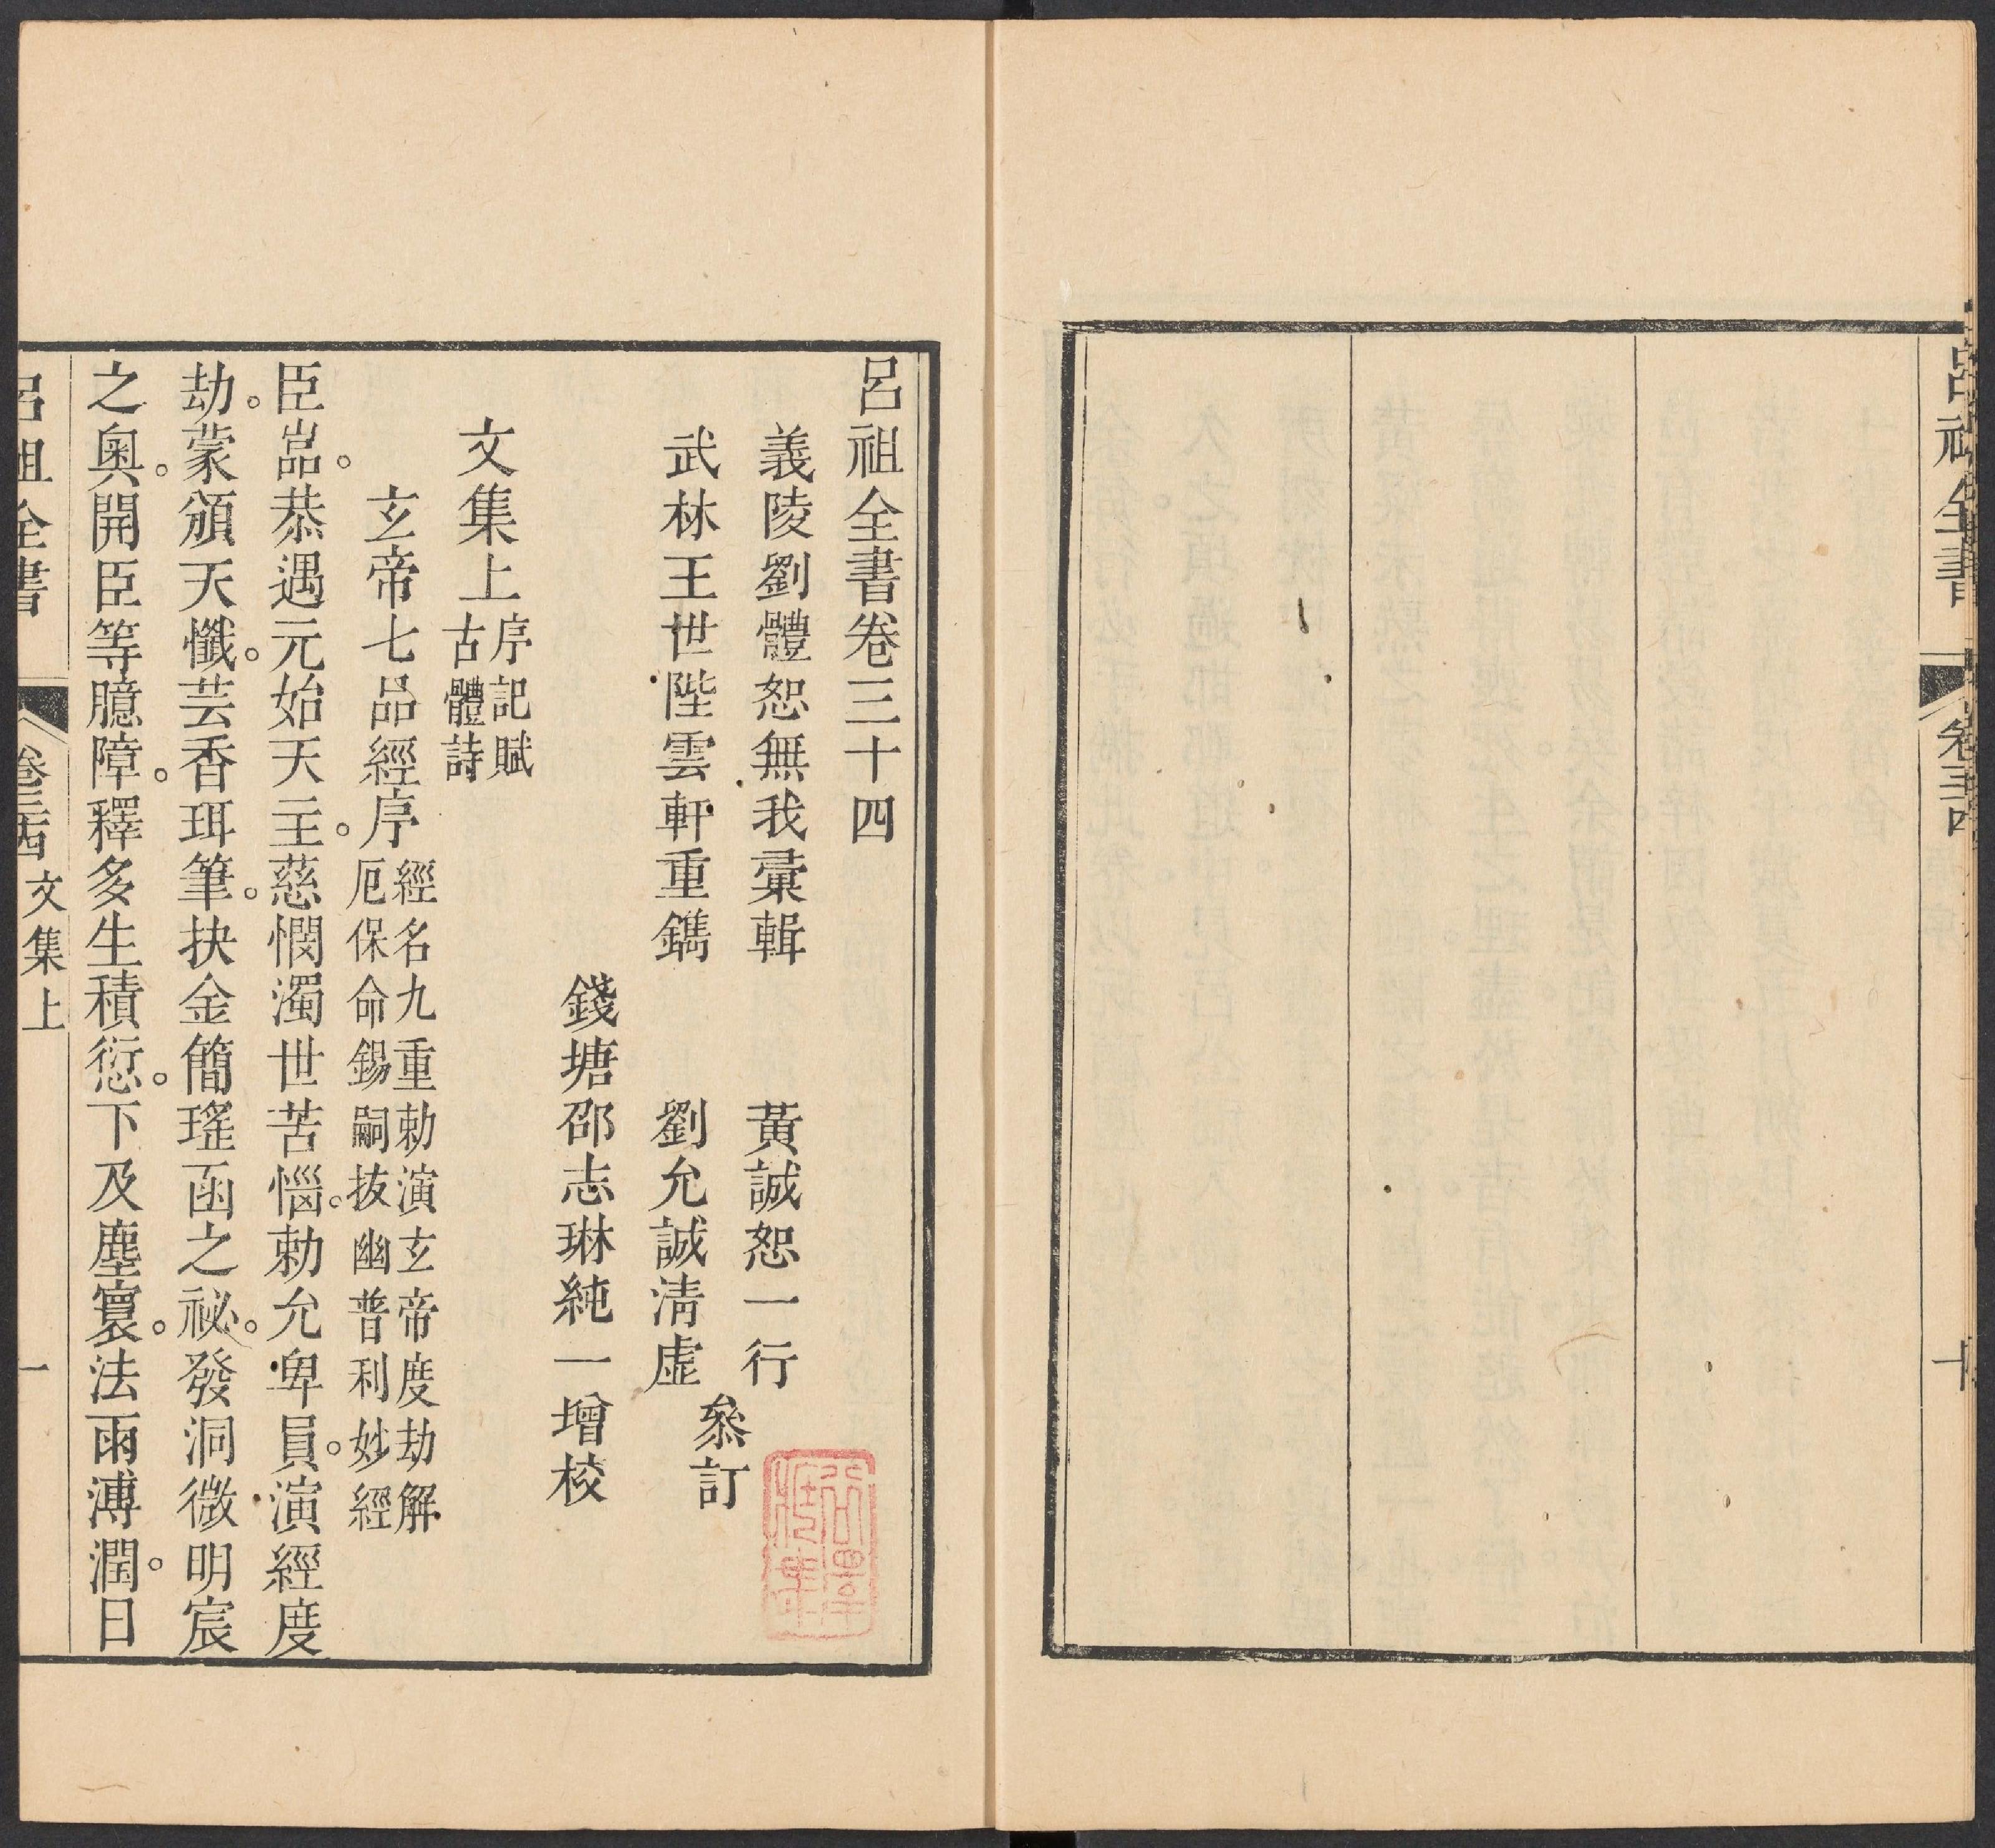 呂祖全書
卷三十四
呂祖全書卷三十四
義陵劉體恕無我彙輯
黃誠恕一行
武林王世陛雲軒重鐫
劉允誠清虛
叅訂
錢塘邵志琳純一增校
文集上
序記賦
古體詩
玄帝七品經序
經名九重勅演玄帝度劫解
厄保命錫嗣抜幽普利妙經
臣嵓。恭遇元始天王。慈憫濁世苦惱。勅允卑員。演經度
劫。蒙頒天懺。芸香珥筆。抉金簡瑤函之祕。發洞微明宸
之奧。開臣等臆障。釋多生積愆。下及塵寰。法雨溥潤。日
呂祖全書
卷三十四
文集上
一